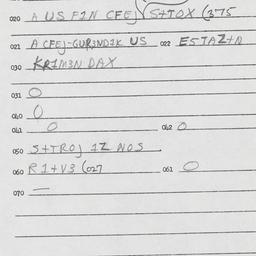 020 A US FIN CFEJ √S+TOX (375
021 A CFEJ-GUR3ND1K US 022 ESTAZ+A
030 KRIM3N DAX
031 O
040 O
041 O 042 O
050 S+TROJ 1Z NOS
060 R1+V3 (027 061 O
070 —